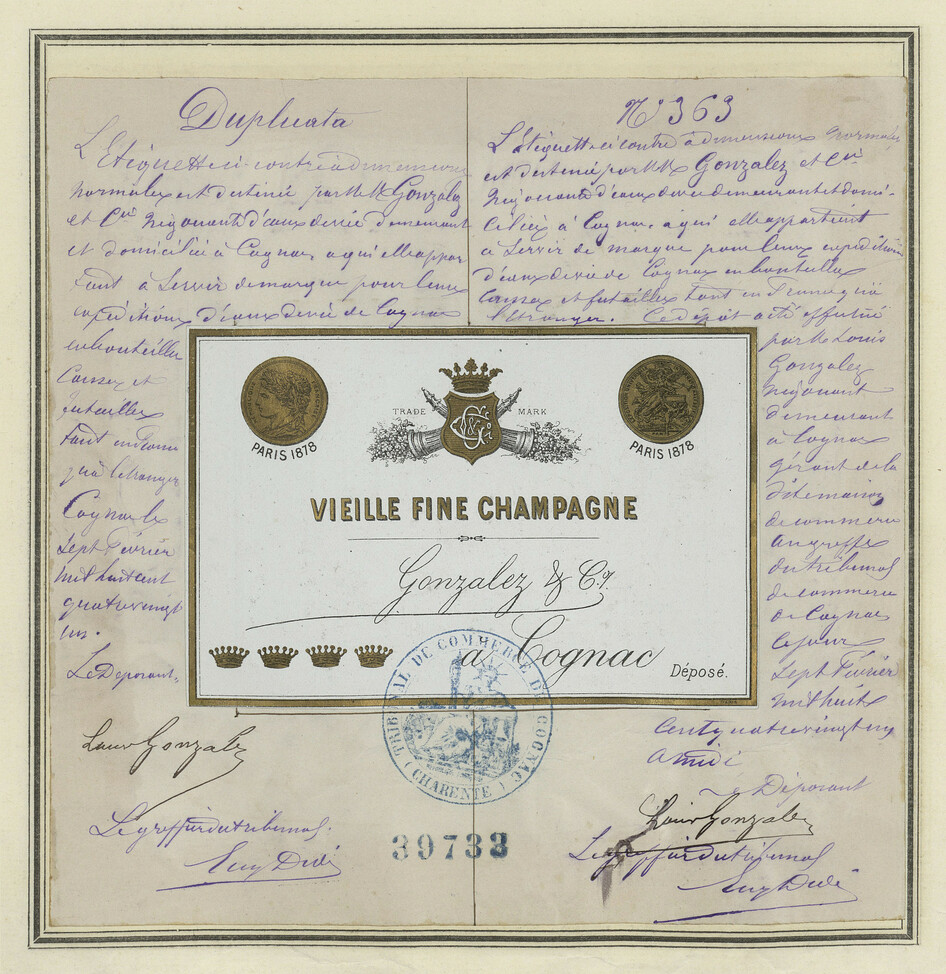 Duplicata
L'Etiquette ci-contre à dimensions
normales est destinée par MM Gonzalez
et Cie Négociants d'eaux de vie demeurant
et domicilié à Cognac, à qui elle appar
tient à Servir de marque pour leurs
expéditions d'eaux de vie de Cognac
en bouteilles
Caisses et
futailles
tant en France
qu'à l'étranger
Cognac le
Sept Février
mil huit cent
quatre vingt
un.
Le Déposant,
Louis Gonzalez
Le greffier du tribunal.
N° 363
L'Etiquette ci contre à dimensions normales
est destinée par MM Gonzalez et Cie
Négociants d'eaux de vie demeurant et domi-
ciliés à Cognac, à qui elle appartient
à Servir de marque pour leurs expéditions
d'eaux de vie de Cognac en bouteilles
Caisses et futailles tant en France qu'à
l'étranger. Ce dépôt a été effectué
par Mr Louis
Gonzalez
négociant
demeurant
à Cognac
gérant de la
dite maison
de commerce
au greffe
du tribunal
de commerce
de Cognac
ce jour
Sept Février
mil huit
cent quatre vingt un
à midi
Le Déposant
Louis Gonzalez
Le greffier du tribunal
PARIS 1878
TRADE MARK
G&Co
PARIS 1878
VIEILLE FINE CHAMPAGNE
Gonzalez & Co.
à Cognac
Déposé.
TRIBUNAL DE COMMERCE DE COGNAC
(CHARENTE)
39733